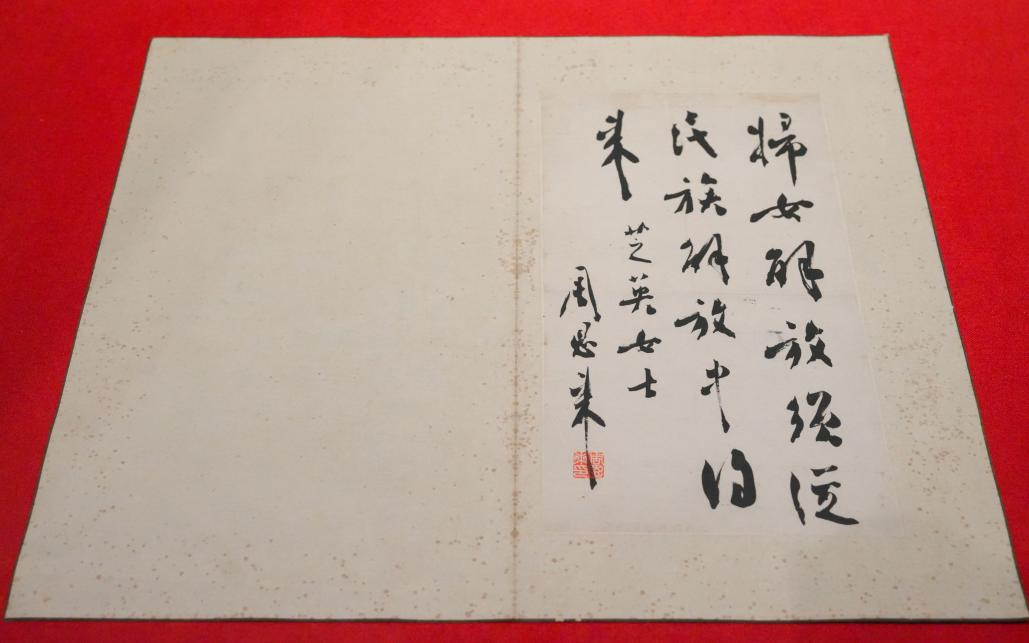 婦女解放須從
民族解放中得
来
芝英女士
周恩来